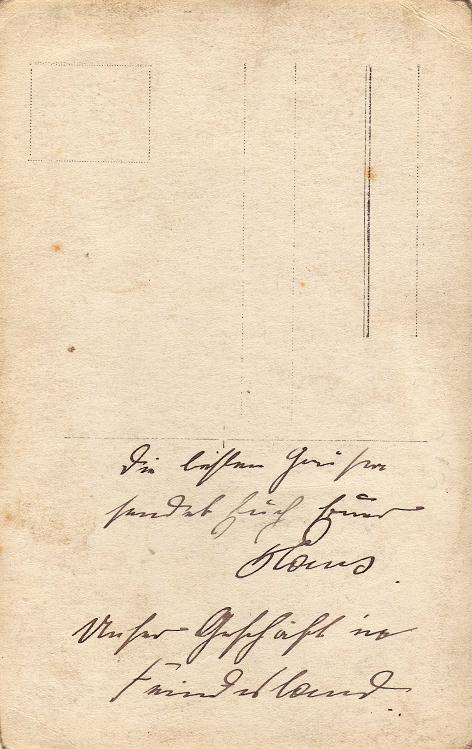 Die besten Grüße
sendet Euch Euer
Hans.
Unser Geschäft in
Feindesland.